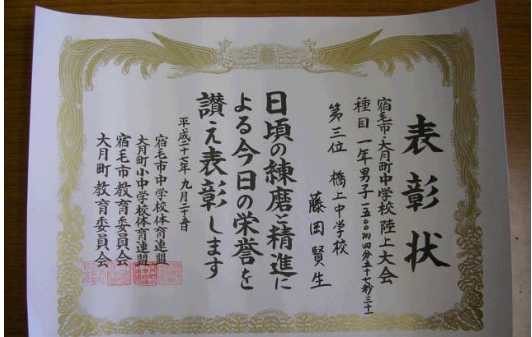 表彰状
宿毛市・大月町中学校陸上大会
種目 一年男子一五〇〇m四分五十七秒三十一
第三位 橋上中学校
藤田賢生
日頃の練磨と精進に
よる今日の栄誉を
讃え表彰します
平成二十七年九月二十日
宿毛市中学校体育連盟
大月町小中学校体育連盟
宿毛市教育委員会
大月町教育委員会